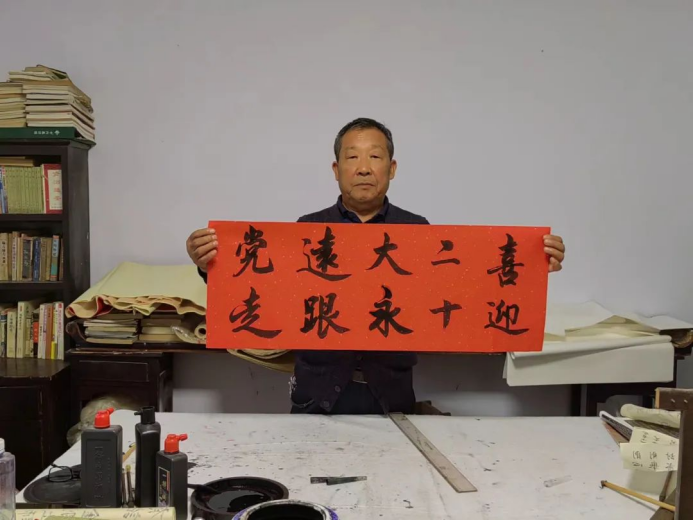 喜迎
二十
大永
遠跟
党走